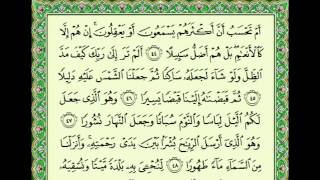 أَمْ تَحْسَبُ أَنَّ أَكْثَرَهُمْ يَسْمَعُونَ أَوْ يَعْقِلُونَ إِنْ هُمْ إِلَّا
كَالْأَنْعَٰمِ بَلْ هُمْ أَضَلُّ سَبِيلًا ٤٤ أَلَمْ تَرَ إِلَىٰ رَبِّكَ كَيْفَ مَدَّ
الظِّلَّ وَلَوْ شَاءَ لَجَعَلَهُ سَاكِنًا ثُمَّ جَعَلْنَا الشَّمْسَ عَلَيْهِ دَلِيلًا
٤٥ ثُمَّ قَبَضْنَٰهُ إِلَيْنَا قَبْضًا يَسِيرًا ٤٦ وَهُوَ الَّذِي جَعَلَ لَكُمُ
الَّيْلَ لِبَاسًا وَالنَّوْمَ سُبَاتًا وَجَعَلَ النَّهَارَ نُشُورًا ٤٧
وَهُوَ الَّذِي أَرْسَلَ الرِّيَٰحَ بُشْرًا بَيْنَ يَدَيْ رَحْمَتِهِ وَأَنزَلْنَا
مِنَ السَّمَاءِ مَاءً طَهُورًا ٤٨ لِّنُحْـِۧيَ بِهِ بَلْدَةً مَّيْتًا وَنُسْقِيَهُ